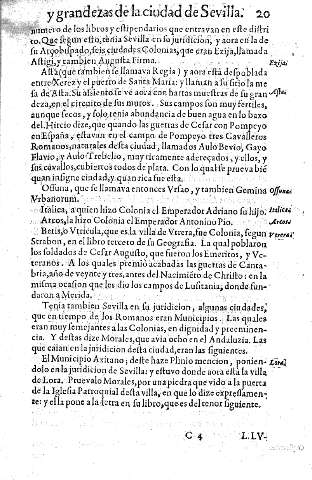 y grandezas de la ciudad de Sevilla. 20
numero de los libros y estipendarios que entravan en este distri
to. Que segun esto, tenia Sevilla en su juridicion, y aora en la de
su Arçobispado, seis ciudades Colonias, que eran Ezija, llamada
Astigi, y tambien Augusta Firma. Ezija.
Asta (que tambien se llamava Regia) y aora está despoblada
entre Xerez y el puerto de Santa Maria: y llaman a su sitio la me
sa de Asta. Su assiento se vè aora con hartas muestras de su gran Asta.
deza, en el circuito de sus muros. Sus campos son muy fertiles,
aunque secos, y solo tenia abundancia de buen agua en lo baxo
del. Hircio dize, que quando las guerras de Cesar con Pompeyo
en España, estavan en el campo de Pompeyo tres Cavalleros
Romanos, naturales desta ciudad, llamados Aulo Bevio, Gayo
Flavio, y Aulo Trebelio, muy ricamente adereçados, y ellos, y
sus cavallos, cubiertos todos de plata. Con lo qual se prueva biē
quan insigne ciudad, y quan rica fue esta.
Ossuna, que se llamava entonces Vrsao, y tambien Gemina Ossuna.
Vrbanorum.
Italica, a quien hizo Colonia el Emperador Adriano su hijo. Italica
Arcos, la hizo Colonia el Emperador Antonino Pio. Arcos
Betis, o Vtricula, que es la villa de Vtrera, fue Colonia, segun Vtrera.
Strabon, en el libro tercero de su Geografia. La qual poblaron
los soldados de Cesar Augusto, que fueron los Emeritos, y Ve-
teranos. A los quales premió acabadas las guerras de Canta-
bria, año de veynte y tres, antes del Nacimiēto de Christo: en la
misma ocasion que les dio los campos de Lusitania, donde fun-
daron a Merida.
Tenia tambien Sevilla en su juridicion, algunas ciudades,
que en tiempo de los Romanos eran Municipios. Las quales
eran muy semejantes a las Colonias, en dignidad y preeminen-
cia. Y destas dize Morales, que avia ocho en el Andaluzia. Las
que caian en la juridicion desta ciudad, eran las siguientes.
El Municipio Axitano; deste haze Plinio mencion, ponien- Lora.
dolo en la juridicion de Sevilla: y estuvo donde aora está la villa
de Lora. Pruevalo Morales, por una piedra que vido a la puerta
de la Iglesia Parroquial desta villa, en que lo dize expressamen-
te: y esta pone a la letra en su libro, que es del tenor siguiente.
C 4 L. LV-